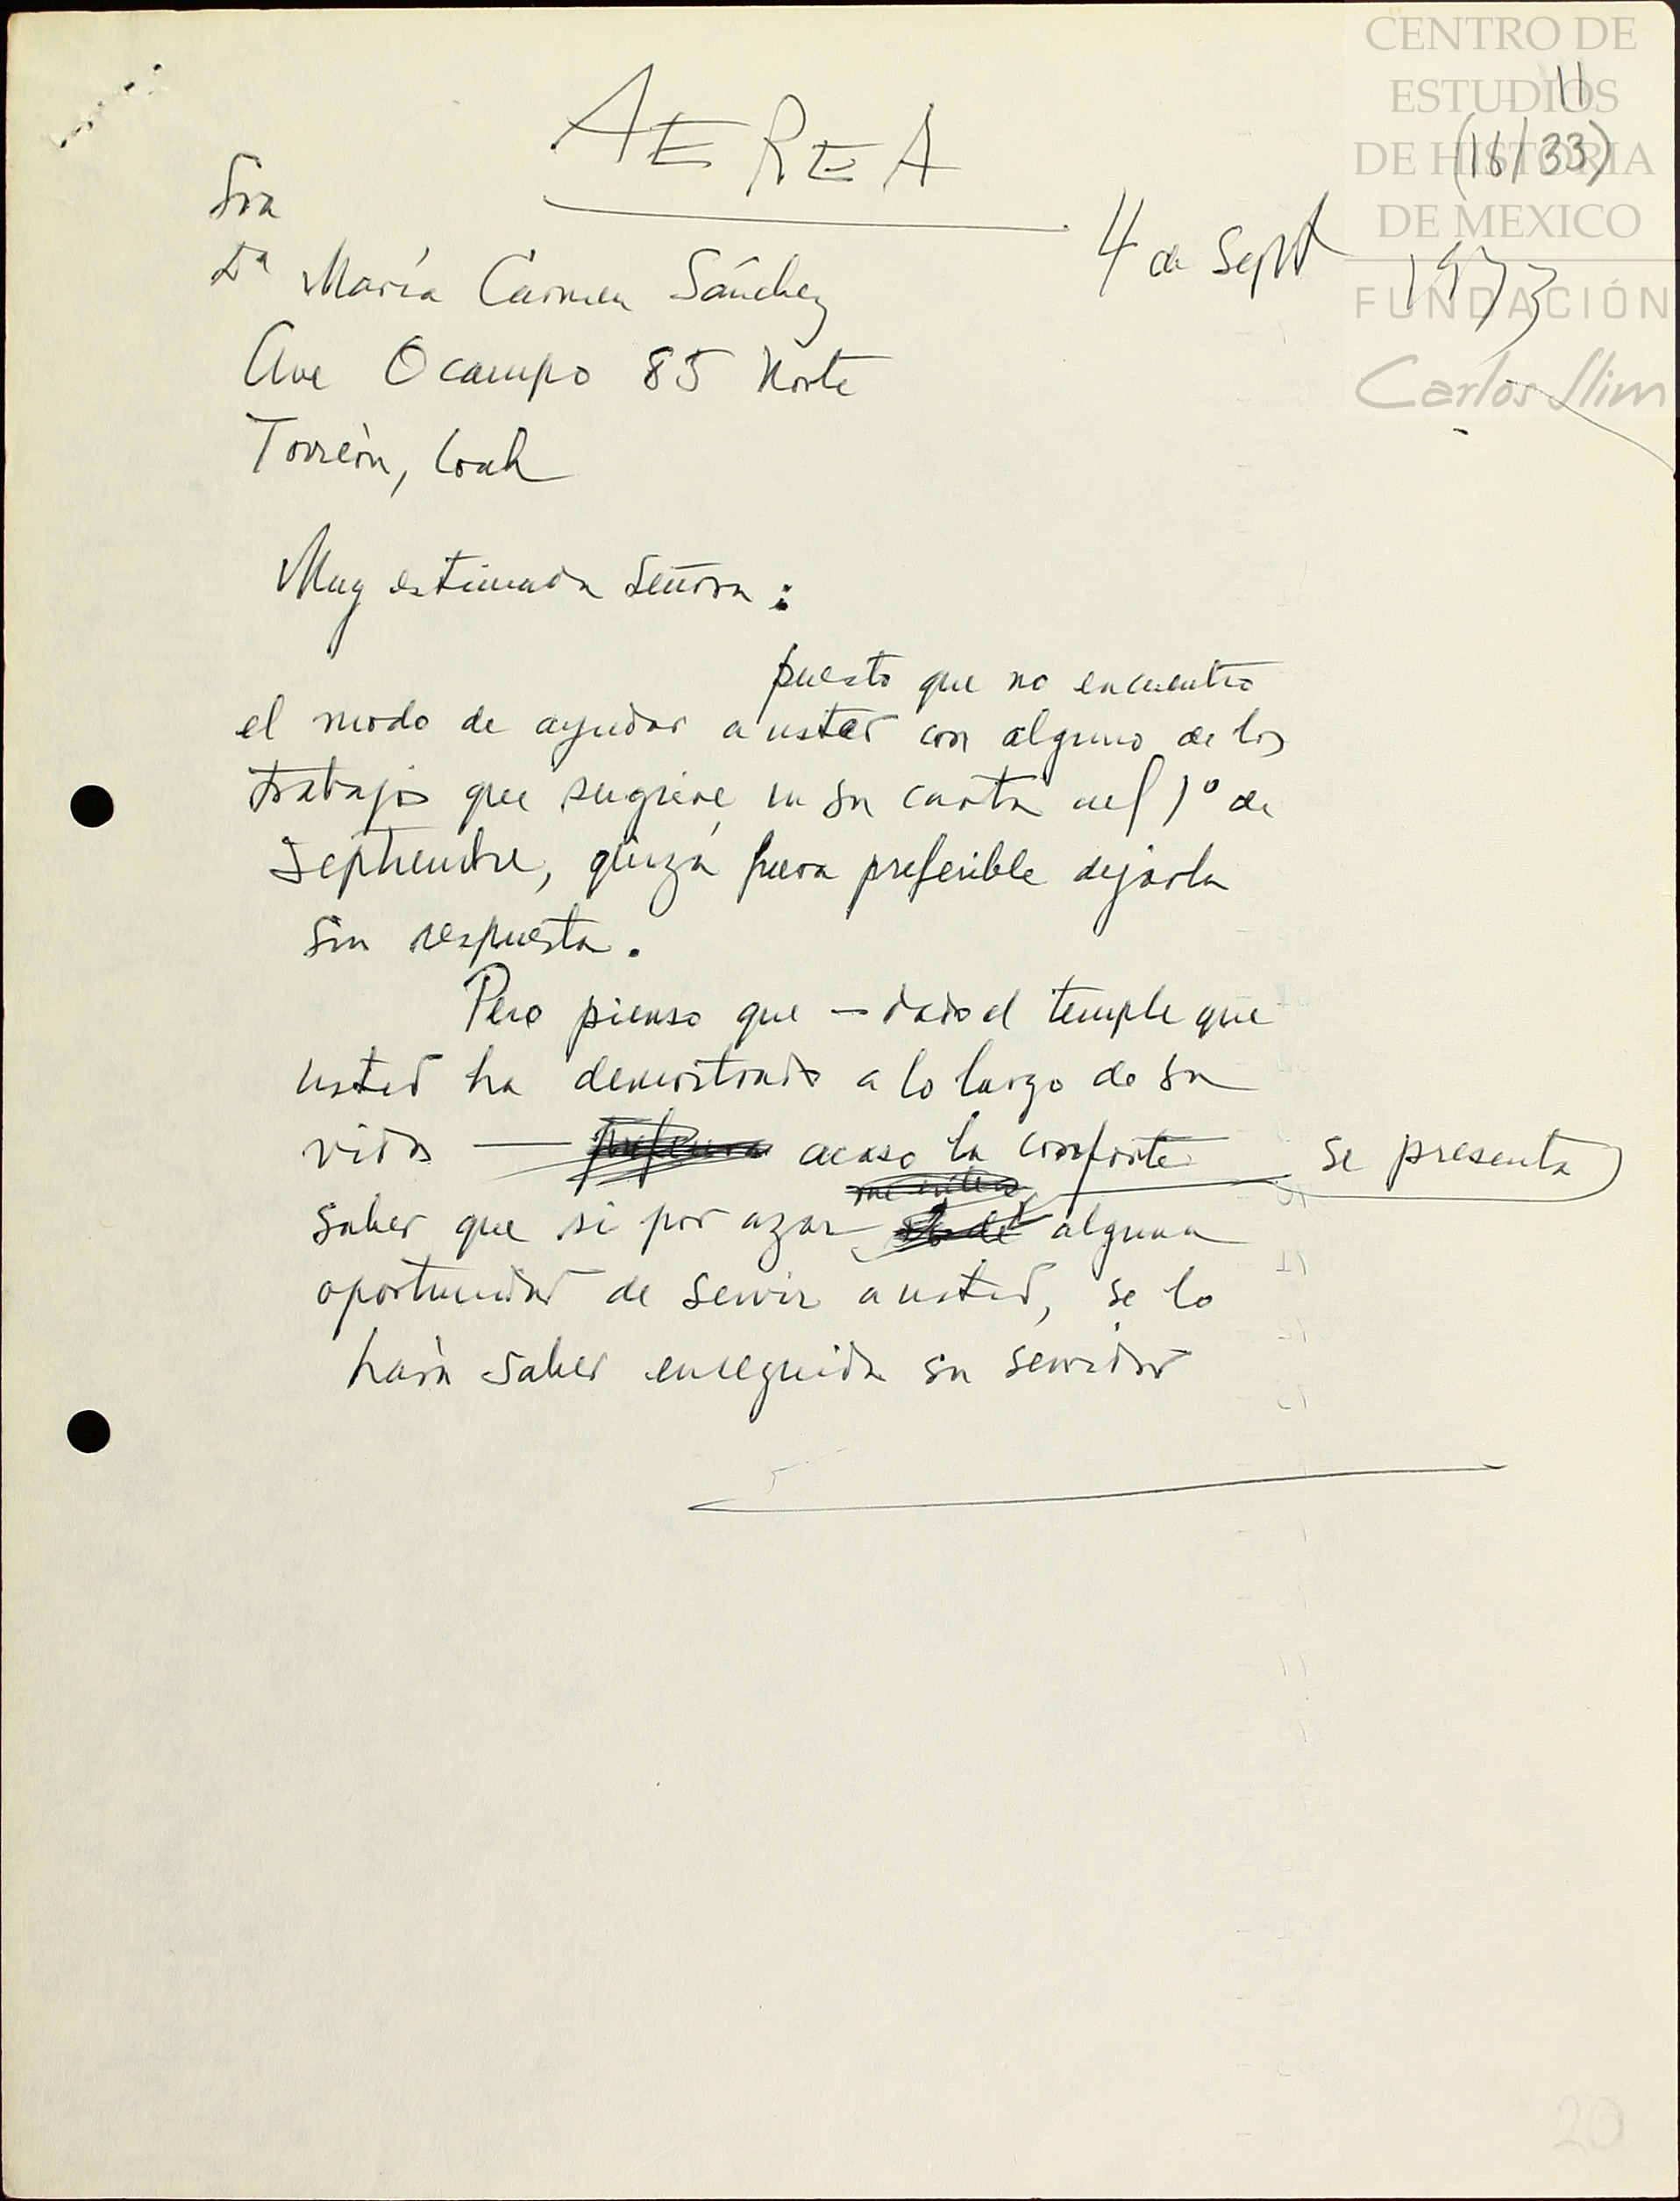 CENTRO DE
ESTUDIOS
DE HISTORIA
DE MEXICO
FUNDACIÓN
Carlos Slim
11
(16/33)
AEREA
4 de Sept
1973
Sra
Dª María Carmen Sánchez
Ave Ocampo 85 Norte
Torreón, Coah
Muy estimada Señora:
puesto que no encuentro
el modo de ayudar a usted con alguno de los
trabajos que sugiere en su carta del 1º de
Septiembre, quizá fuera preferible dejarla
sin respuesta.
Pero pienso que — dado el temple que
usted ha demostrado a lo largo de su
vida — acaso la conforte
saber que si por azar se presenta alguna
oportunidad de servir a usted, se lo
hará saber enseguida su servidor
20